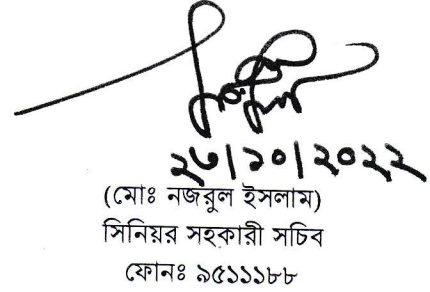 ২৩/১০/২০২২
(মোঃ নজরুল ইসলাম)
সিনিয়র সহকারী সচিব
ফোনঃ ৯৫১১১৮৮